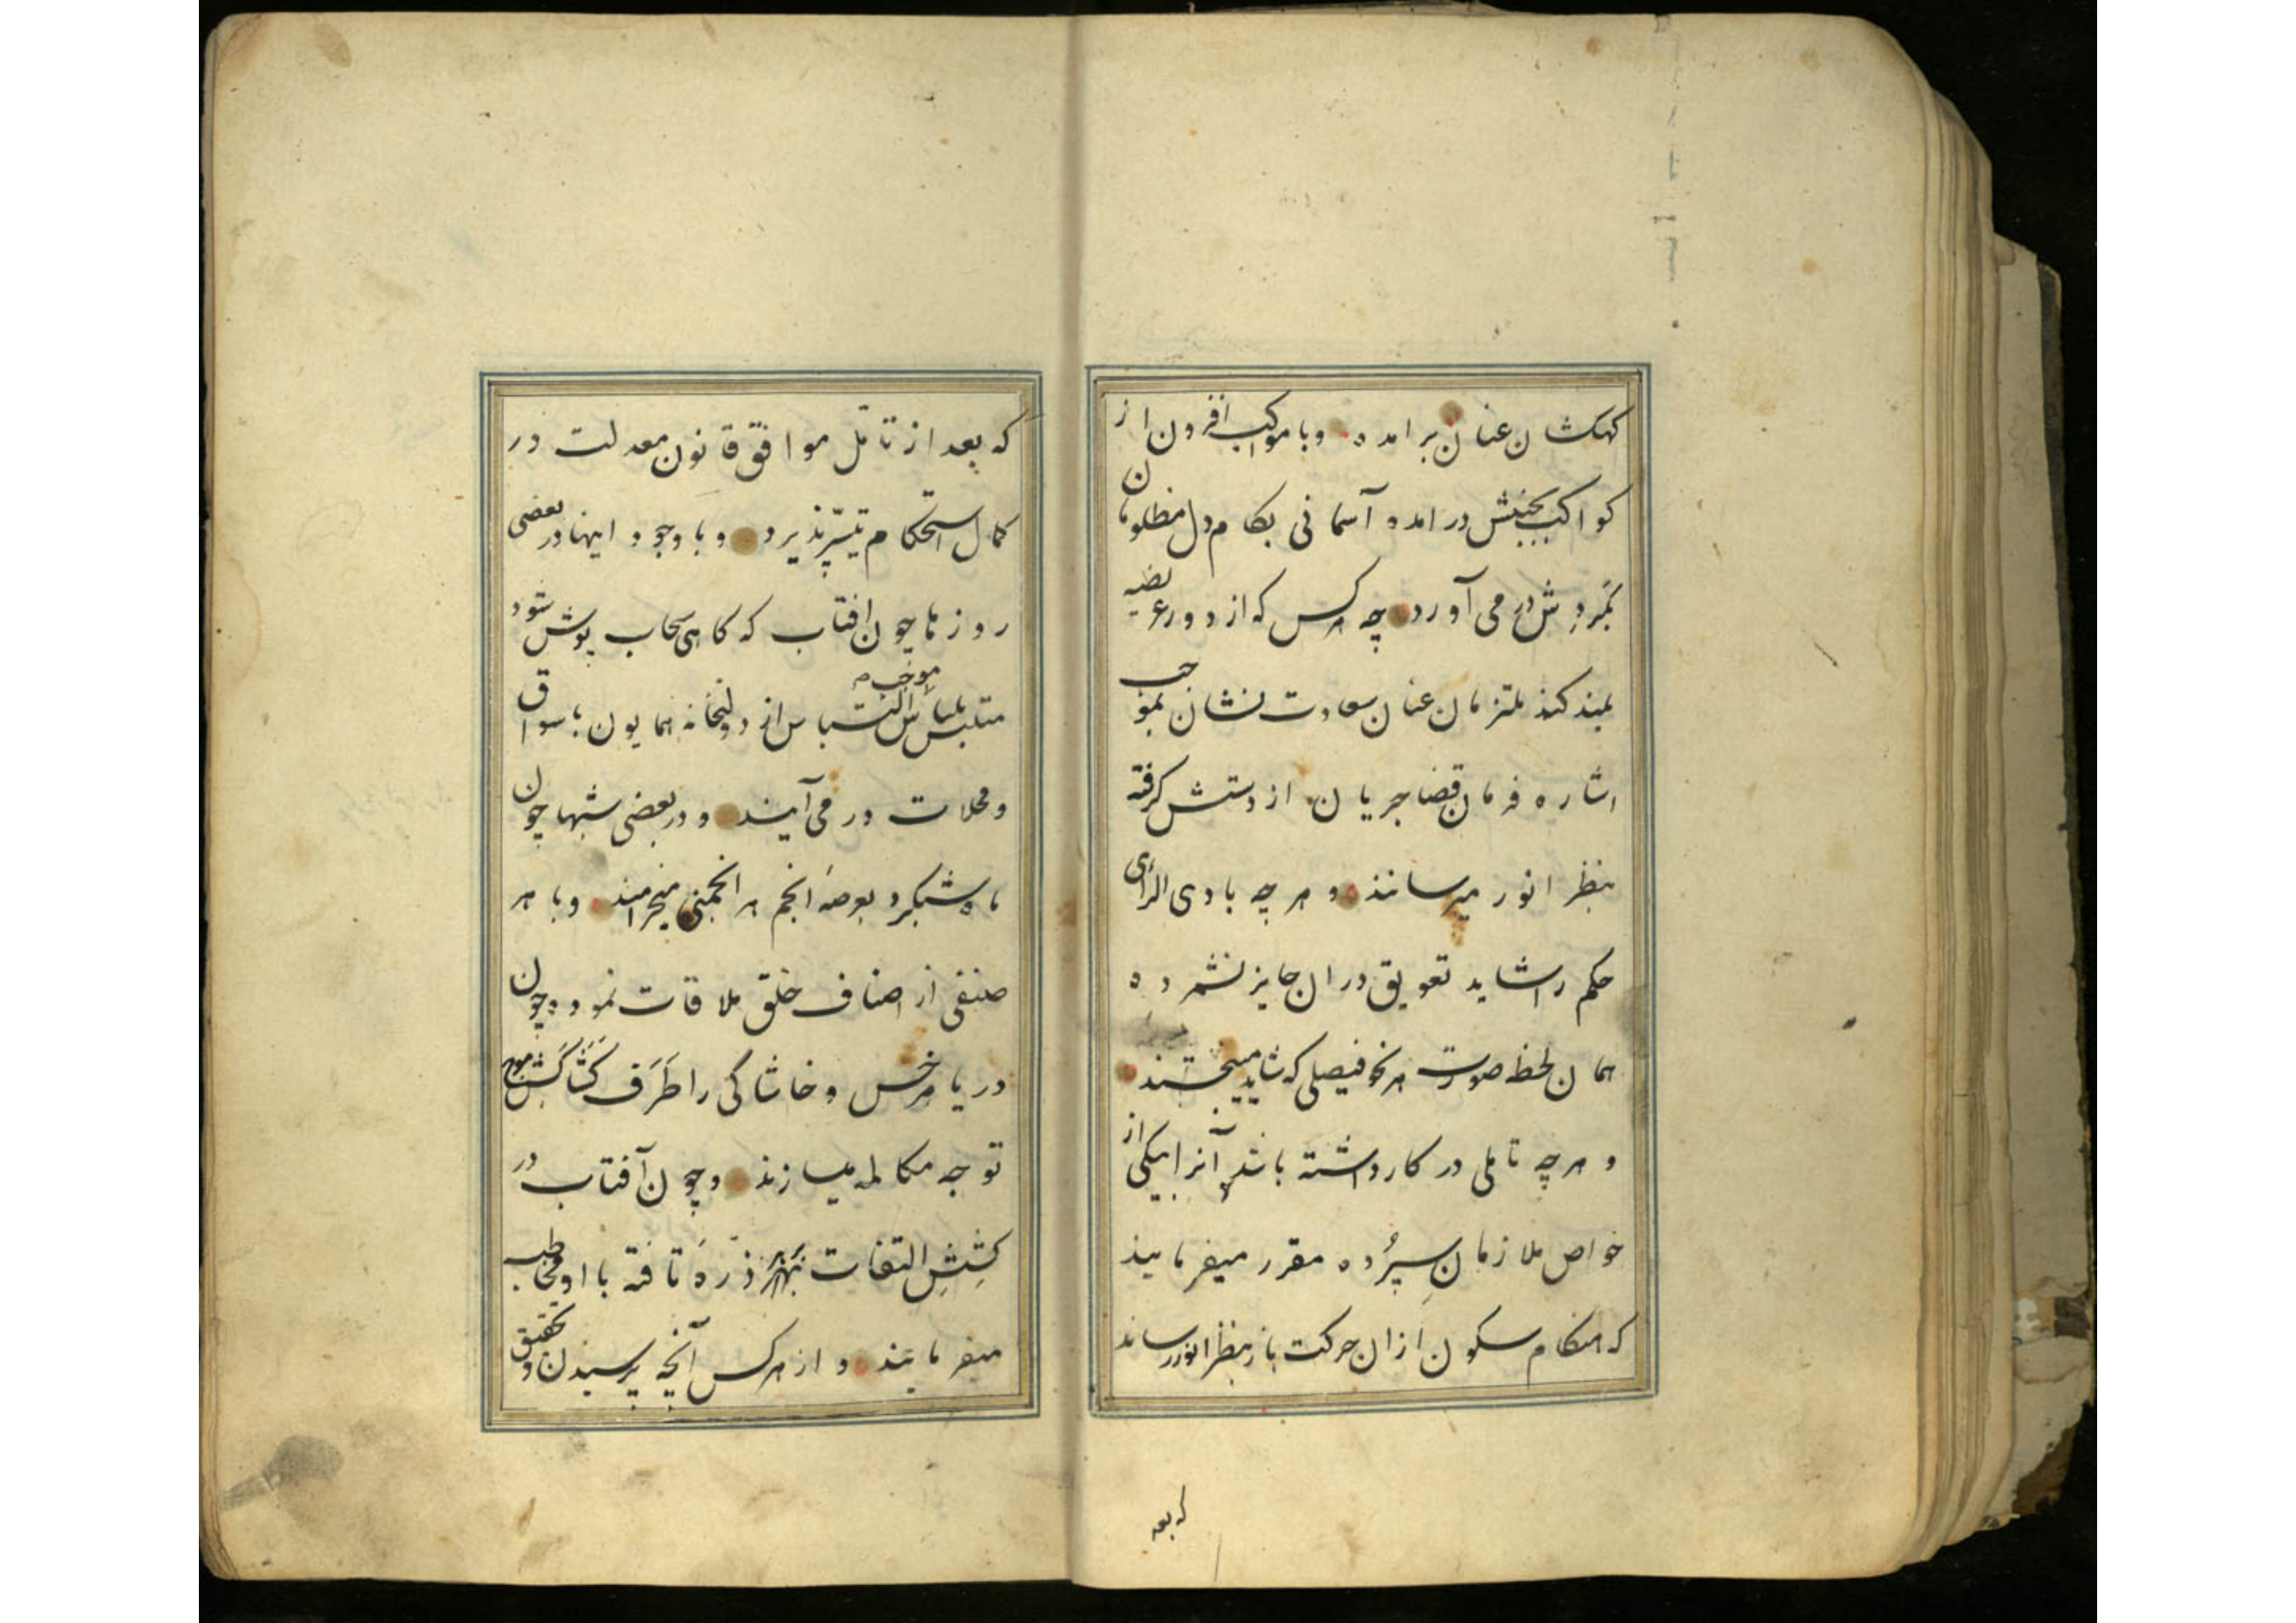 کهکشان عنان برامده و با موکب افزون از
کواکب بجنبش درامده آسمانی بکام دل مظلومان
بگردش در می آورد چه هر کس که از دور عریضه
بلند کند ملتزمان عنان سعادت نشان بموجب
اشاره فرمان قضا جریان از دستش گرفته
بنظر انور میرسانند و هر چه بادی الرأی
حکم را شاید تعویق در ان جایز نشمرده
همان لحظه صورت هر نحو فیصلی که شاید میبخشند
و هر چه تاملی در کار داشته باشد آنرا بیکی از
خواص ملازمان سپرده مقرر میفرمایند
که هنکام سکون ازان حرکت باز بنظر انور رساند
که بعد
که بعد از تامل موافق قانون معدلت در
کمال استحکام تیسّر پذیرد و با وجود اینها در بعضی
روزها چون افتاب که کاهی سحاب پوش شود
متلبس بلباس التباس از دولتخانه همایون باسواق
ومحلات در می آیند و در بعضی شبها چون
ماه شبکرد بعرصه انجم هر انجمنی میخرامند و با هر
صنفی از اصناف خلق ملاقات نموده چون
دریا هر خس و خاشاکی را طَرَف کَشَاکَش موج
توجه مکالمه میسازند و چون آفتاب در
کشش التفات بهر ذره تافته با او مخاطبه
میفرمایند و از هر کس آنچه پرسیدن و تحقیق